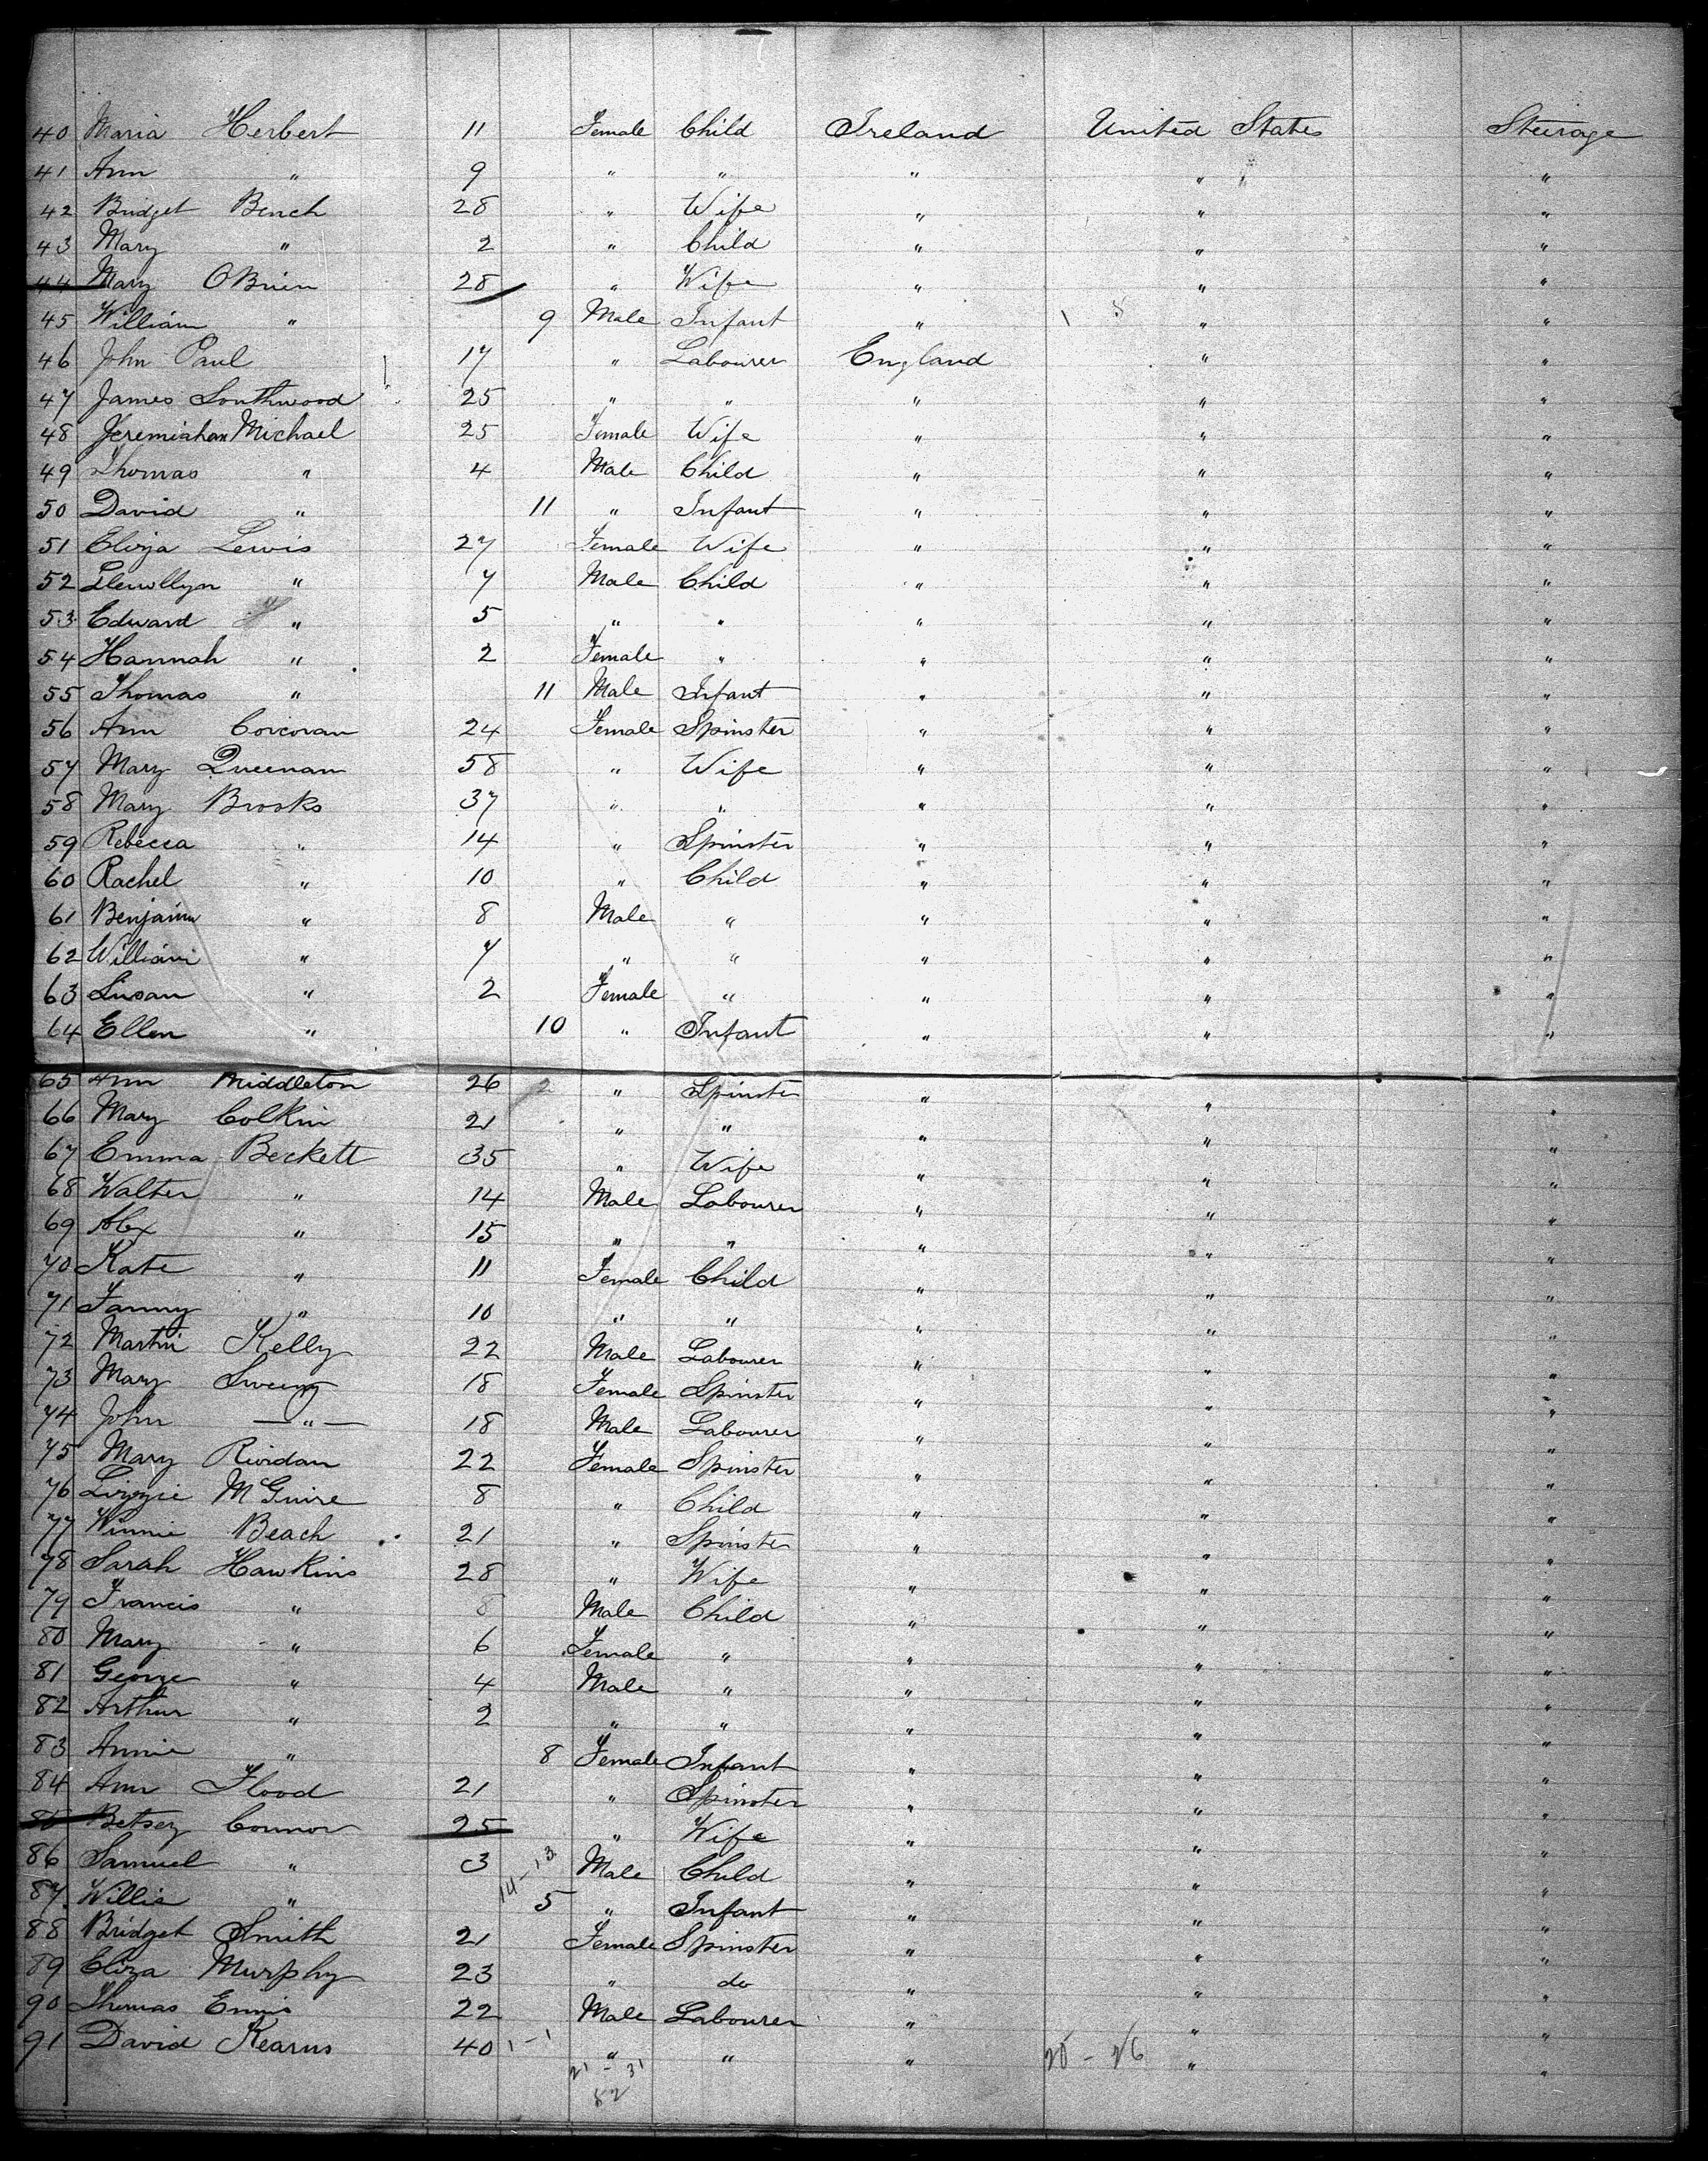 40 Maria Herbert 11 Female Child Ireland United States Steerage
41 Ann " 9 " " " " "
42 Bridget Bench 28 " Wife " " "
43 Mary " 2 " Child " " "
44 Mary OBrien 28 " Wife " " "
45 William " 9 Male Infant " " "
46 John Paul 17 " Labourer England " "
47 James Southwood 25 " " " " "
48 Michael 25 Female Wife " " "
49 Thomas " 4 Male Child " " "
50 David " 11 " Infant " " "
51 Eliza Lewis 27 Female Wife " " "
52 Llewllyn " 7 Male Child " " "
53 Edward " 5 " " " " "
54 Hannah " 2 Female " " " "
55 Thomas " 11 Male Infant " " "
56 Ann Corcoran 24 Female Spinster " " "
57 Mary Queenan 58 " Wife " " "
58 Mary Brooks 37 " " " " "
59 Rebecca " 14 " Spinster " " "
60 Rachel " 10 " Child " " "
61 Benjamin " 8 Male " " " "
62 William " 7 " " " " "
63 Susan " 2 Female " " " "
64 Ellen " 10 " Infant " " "
65 Ann Middleton 26 " Spinster " " "
66 Mary Colkin 21 " " " " "
67 Emma Beckett 35 " Wife " " "
68 Walter " 14 Male Labourer " " "
69 Alex " 15 " " " " "
70 Kate " 11 Female Child " " "
71 Fanny " 10 " " " " "
72 Martin Kelly 22 Male Labourer " " "
73 Mary Sweeny 18 Female Spinster " " "
74 John — " — 18 Male Labourer " " "
75 Mary Riordan 22 Female Spinster " " "
76 Lizzie McGuire 8 " Child " " "
77 Winnie Beach 21 " Spinster " " "
78 Sarah Hawkins 28 " Wife " " "
79 Francis " 8 Male Child " " "
80 Mary " 6 Female " " " "
81 George " 4 Male " " " "
82 Arthur " 2 " " " " "
83 Annie " 8 Female Infant " " "
84 Ann Flood 21 " Spinster " " "
85 Betsey Connor 25 " Wife " " "
86 Samuel " 3 14-13 Male Child " " "
87 Willie " 5 " Infant " " "
88 Bridget Smith 21 Female Spinster " " "
89 Eliza Murphy 23 " do " " "
90 Thomas Ennis 22 Male Labourer " " "
91 David Kearns 40 1-1 " " " " "
21-31 25-26
82